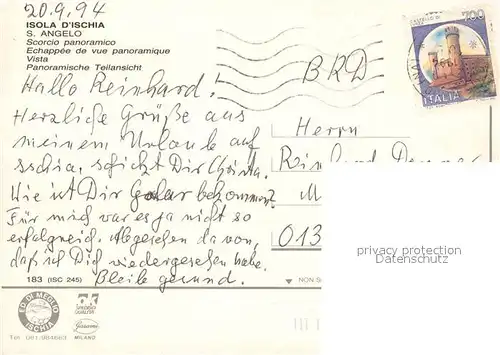 20.9.94
ISOLA D'ISCHIA
S. ANGELO
Scorcio panoramico
Echappée de vue panoramique
Vista
Panoramische Teilansicht
Hallo Reinhard!
Herzliche Grüße aus
meinem Urlaub auf
Ischia, schickt Dir Christa.
Wie ist Dir bekommen?
Für mich war es ja nicht so
erfolgreich. Abgesehen davon,
daß ich Dich wiedergesehen habe.
Bleib gesund.
183 (ISC 245)
ED. DI MEGLIO
ISCHIA
Tel. 081/984663
MILANO
700
ITALIA
BRD
Herrn
013
NON S
privacy protection
Datenschutz